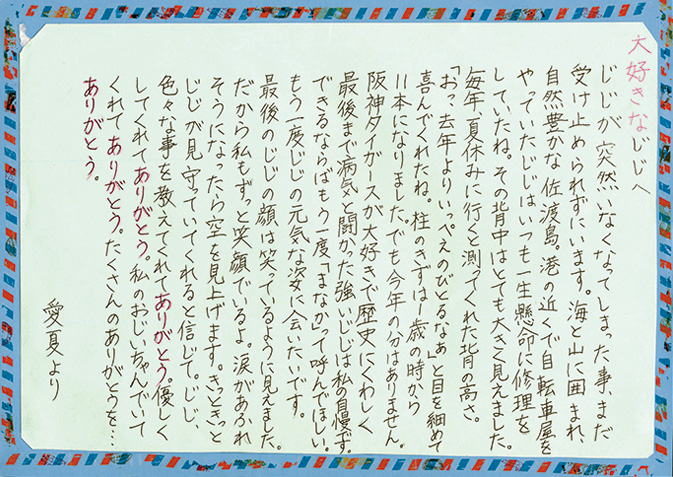 大好きなじじへ
じじが突然いなくなってしまった事、まだ
受け止められずにいます。海と山に囲まれ、
自然豊かな佐渡島、港の近くで自転車屋を
やっていたじじはいつも一生懸命に修理を
していたね。その背中はとても大きく見えました。
毎年、夏休みに行くと測ってくれた背の高さ。
「おっ、去年よりいっぺえのびとるなぁ」と目を細めて
喜んでくれたね。柱のきずは1歳の時から
11本になりました。でも今年の分はありません。
阪神タイガースが大好きで歴史にくわしく、
最後まで病気と闘かった強いじじは私の自慢です。
できるならばもう一度「まなか」って呼んでほしい。
もう一度じじの元気な姿に会いたいです。
最後のじじの顔は笑っているように見えました。
だから私もずっと笑顔でいるよ。涙があふれ
そうになったら空を見上げます。きっときっと
じじが見守っていてくれると信じて。じじ、
色々な事を教えてくれてありがとう。優しく
してくれてありがとう。私のおじいちゃんでいて
くれてありがとう。たくさんのありがとうを…
ありがとう。
愛夏より